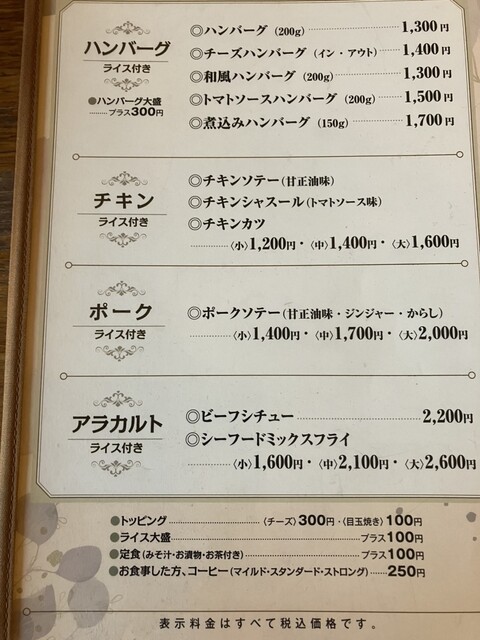 ハンバーグ
ライス付き
●ハンバーグ大盛
………プラス300円
◎ハンバーグ(200g)………1,300円
◎チーズハンバーグ(イン・アウト)………1,400円
◎和風ハンバーグ(200g)………1,300円
◎トマトソースハンバーグ(200g)………1,500円
◎煮込みハンバーグ(150g)………1,700円
チキン
ライス付き
◎チキンソテー(甘正油味)
◎チキンシャスール(トマトソース味)
◎チキンカツ
………〈小〉1,200円・〈中〉1,400円・〈大〉1,600円
ポーク
ライス付き
◎ポークソテー(甘正油味・ジンジャー・からし)
………〈小〉1,400円・〈中〉1,700円・〈大〉2,000円
アラカルト
ライス付き
◎ビーフシチュー………2,200円
◎シーフードミックスフライ
………〈小〉1,600円・〈中〉2,100円・〈大〉2,600円
●トッピング………〈チーズ〉300円・〈目玉焼き〉100円
●ライス大盛………プラス100円
●定食(みそ汁・お漬物・お茶付き)………プラス100円
●お食事した方、コーヒー(マイルド・スタンダード・ストロング)………250円
表示料金はすべて税込価格です。